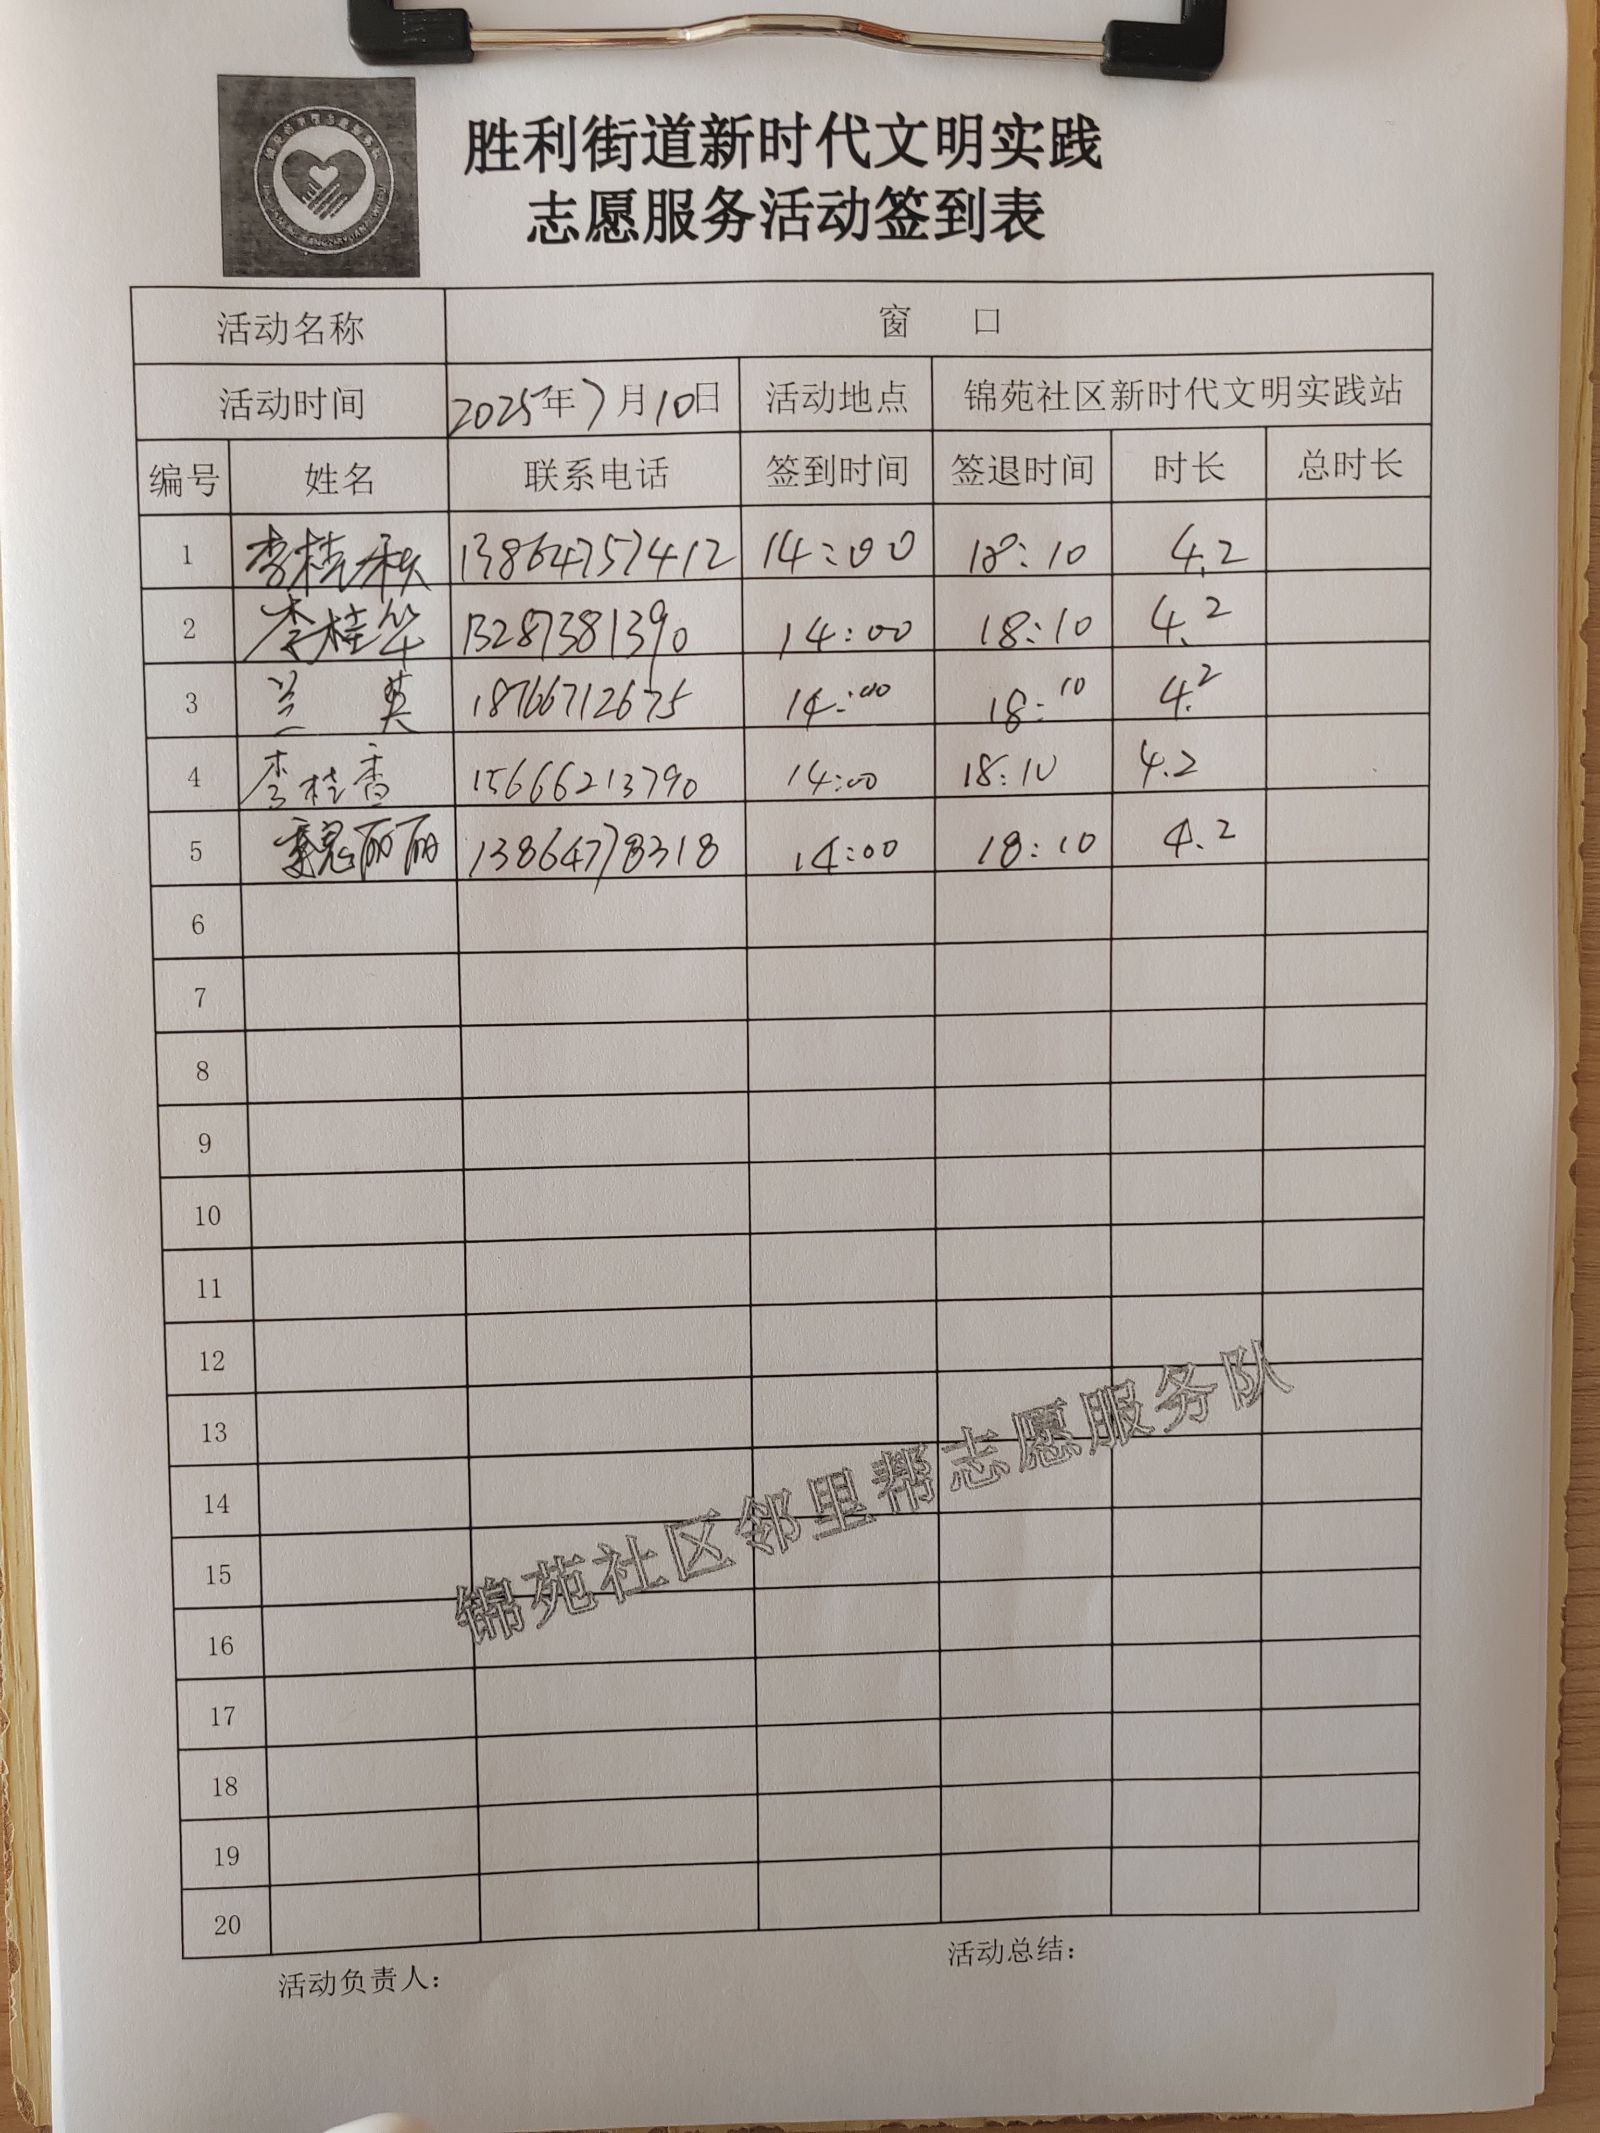 胜利街道新时代文明实践
志愿服务活动签到表
活动名称 窗 口
活动时间 2025年7月10日 活动地点 锦苑社区新时代文明实践站
编号 姓名 联系电话 签到时间 签退时间 时长 总时长
1 李桂秋 13864757412 14:00 18:10 4.2
2 李桂华 13287381390 14:00 18:10 4.2
3 兰英 18766712675 14:00 18:10 4.2
4 李桂香 15666213790 14:00 18:10 4.2
5 魏丽丽 13864778318 14:00 18:10 4.2
6
7
8
9
10
11
12
13
14
15
16
17
18
19
20
锦苑社区邻里帮志愿服务队
活动负责人: 活动总结: